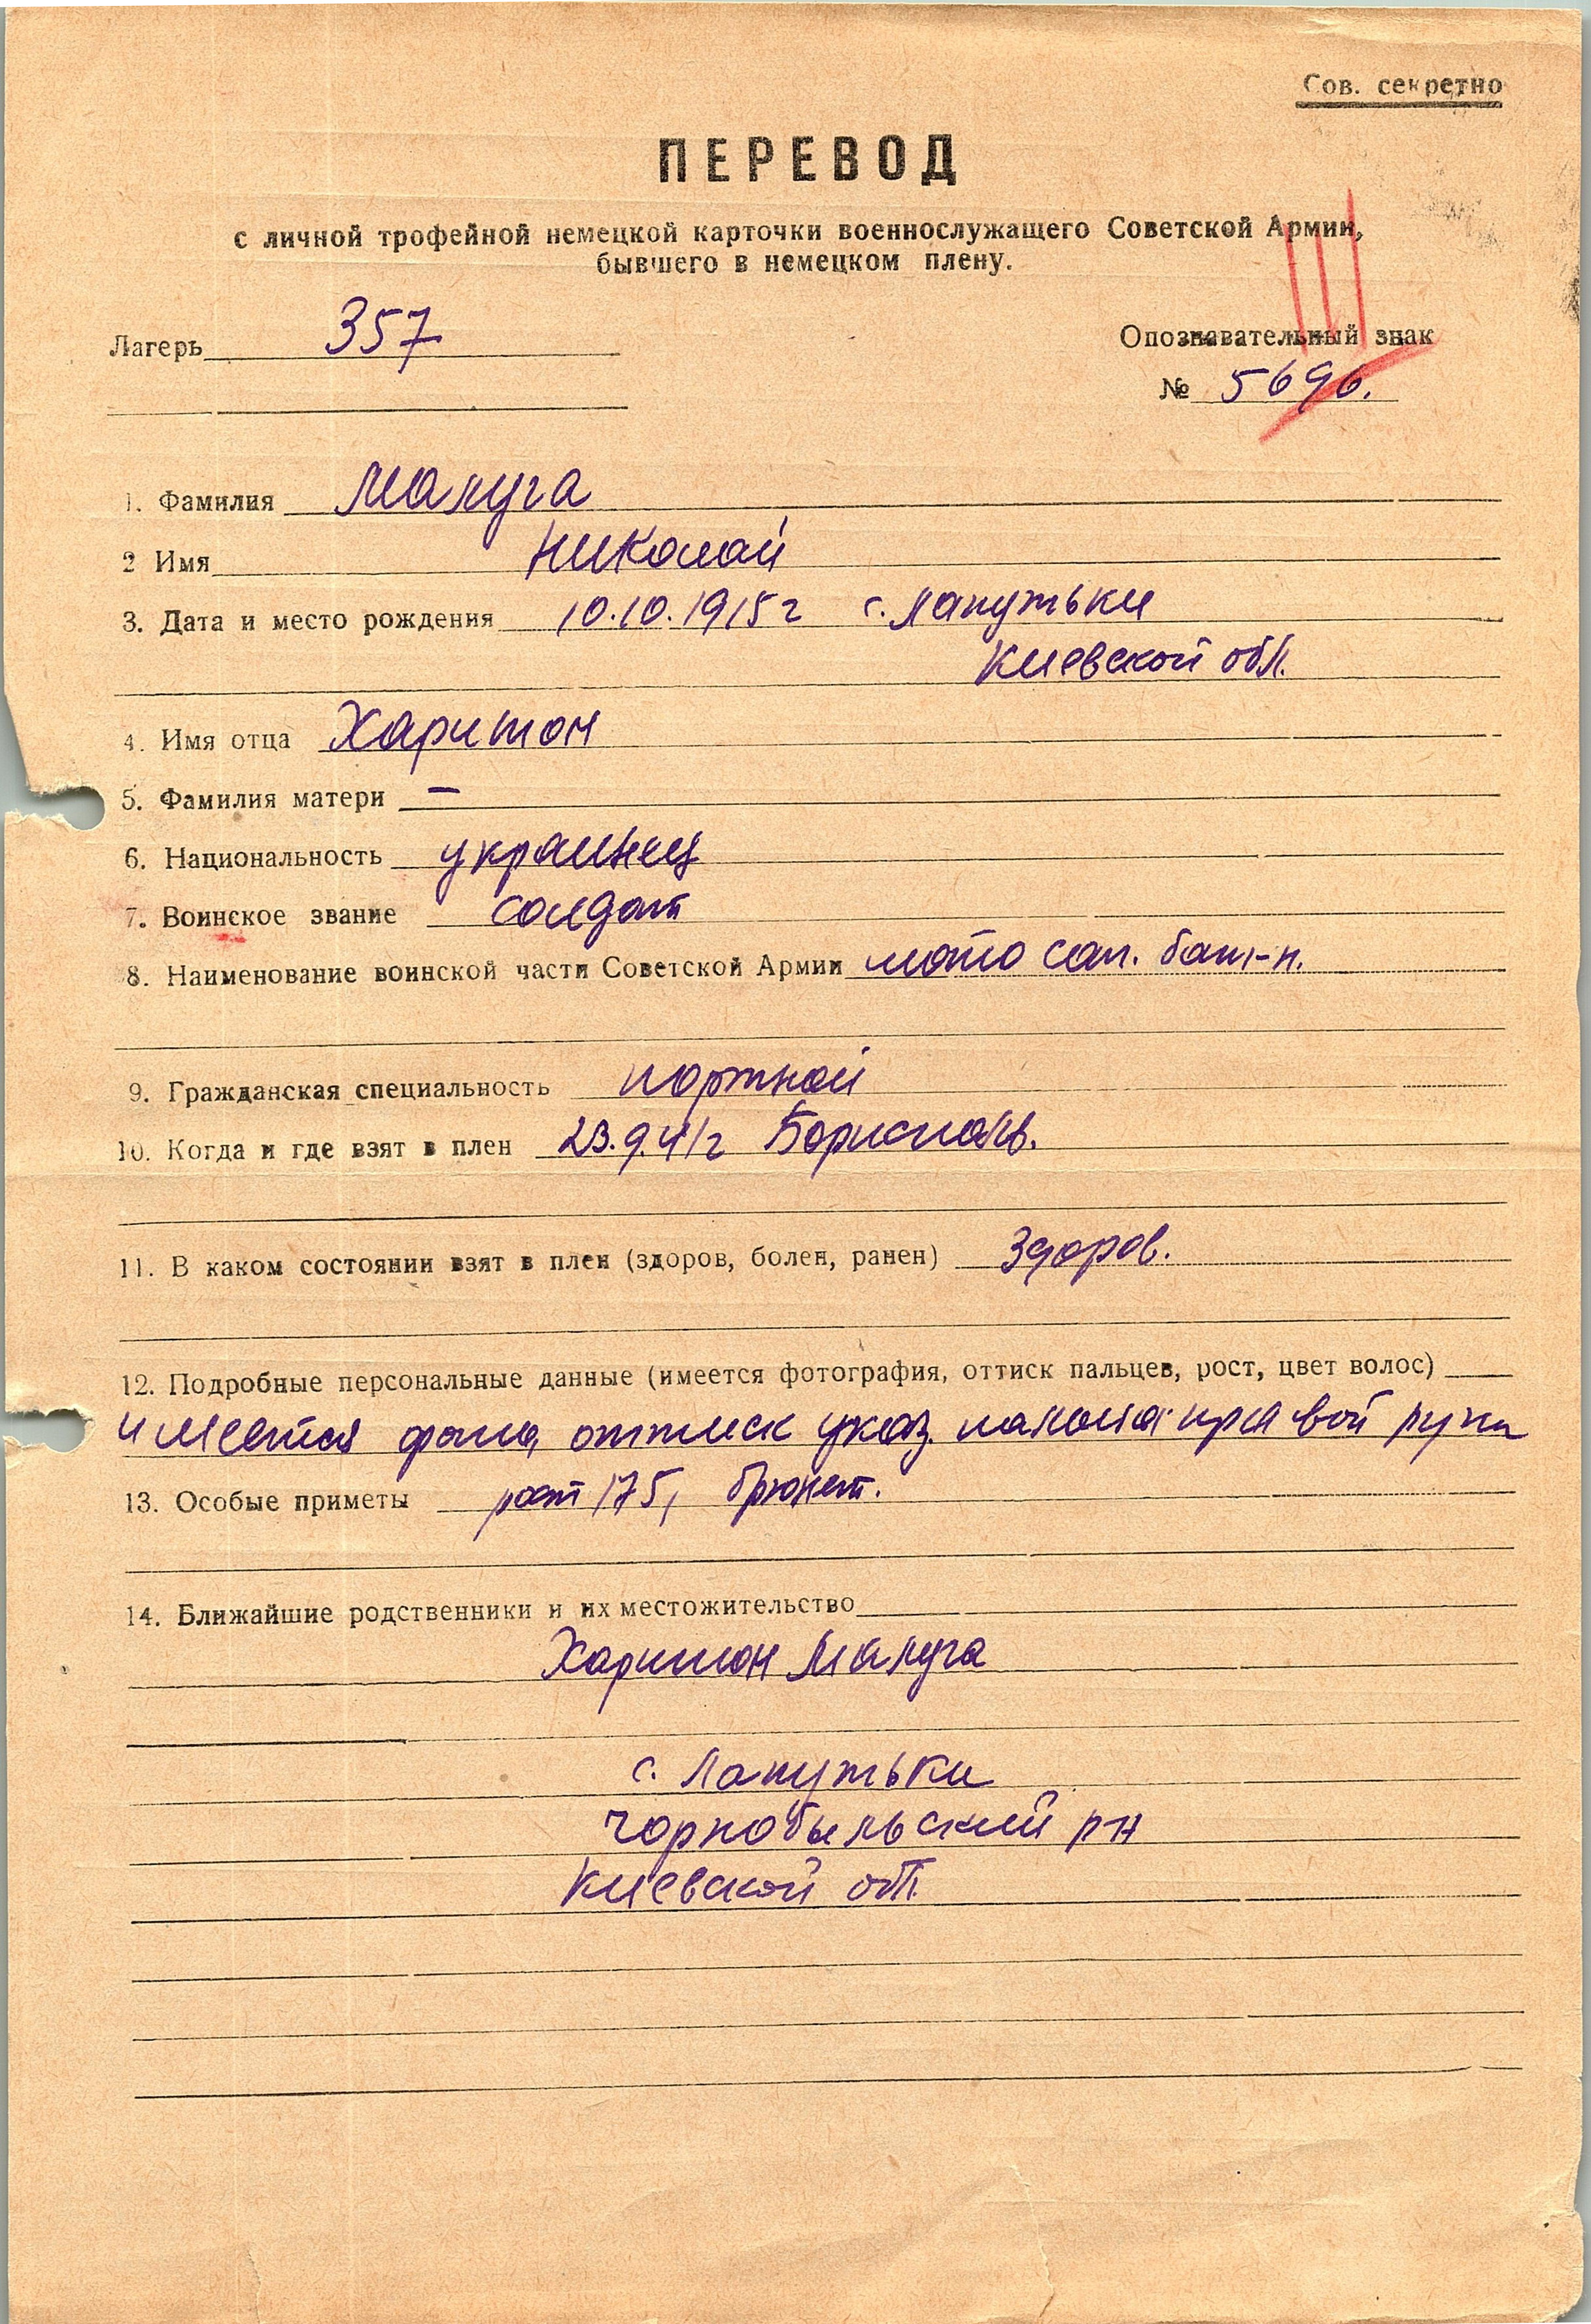 Сов. секретно
ПЕРЕВОД
с личной трофейной немецкой карточки военнослужащего Советской Армии,
бывшего в немецком плену.
Лагерь 357
Опознавательный знак
№ 5696.
1. Фамилия Малуга
2 Имя Николай
3. Дата и место рождения 10.10.1915 г с. Лапутьки
Киевской обл.
4. Имя отца Харитон
5. Фамилия матери —
6. Национальность украинец
7. Воинское звание солдат
8. Наименование воинской части Советской Армии мото сап. бат-н.
9. Гражданская специальность портной
10. Когда и где взят в плен 23.9.41 г Борисполь.
11. В каком состоянии взят в плен (здоров, болен, ранен) Здоров.
12. Подробные персональные данные (имеется фотография, оттиск пальцев, рост, цвет волос)
имеется фото, оттиск указ. пальца правой руки
13. Особые приметы рост 175, брюнет.
14. Ближайшие родственники и их местожительство
Харитон Малуга
с. Лапутьки
Чорнобыльский р-н
Киевской обл.